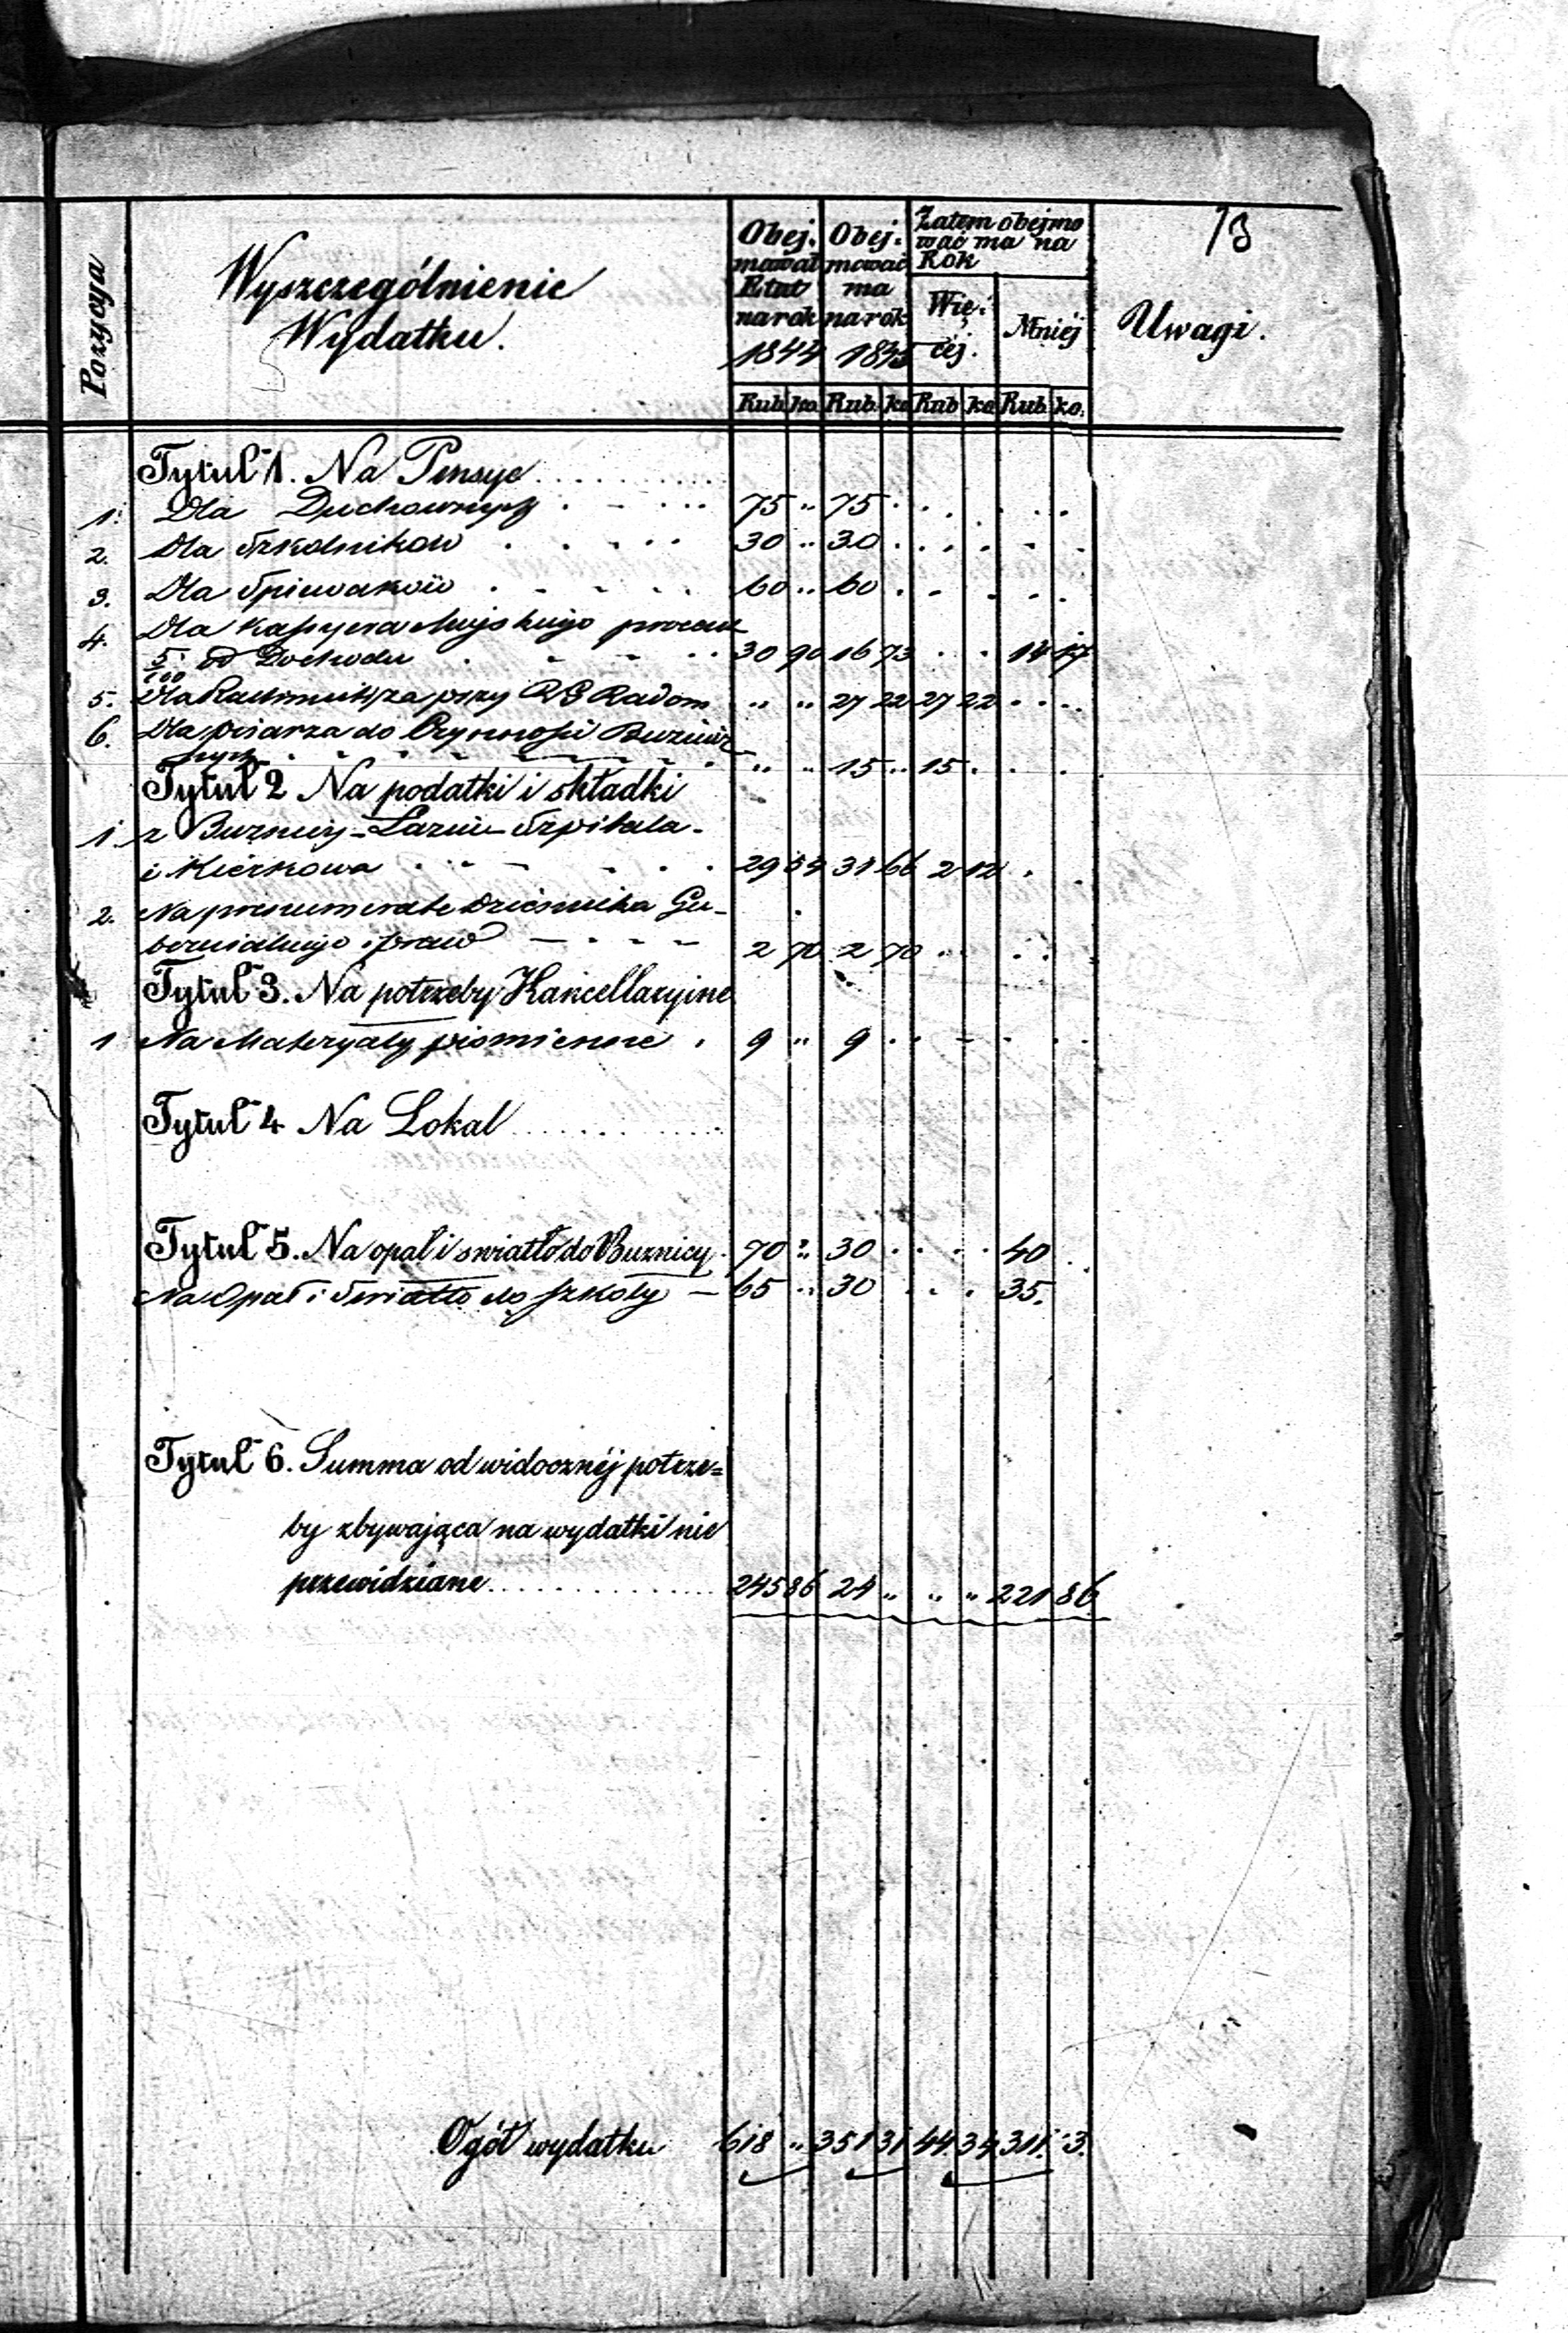 13
Pozycya
Wyszczególnienie
Wydatku.
Obej. mował Etat na rok 1844
Obej. mować ma na rok 1845
Zatem obejmo wać ma na Rok
Wię. céj.
Mniéj
Uwagi.
Rub. ko. Rub. ko Rub ko Rub. ko.
Tytuł 1. Na Pensye
1. Dla Duchownych 75 " 75
2. Dla Szkolników 30 " 30
3. Dla Spiewaków 60 " 60
4. Dla Kassyera Mujskiego procent
5/100 od Dochodu 30 90 16 73 14 17
5. Dla Rachmistrza przy RG Radom " " 27 22 27 22
6. Dla pisarza do Czynnosci Buznicz
nych " " 15 " 15
Tytuł 2 Na podatki i składki
1. z Buznicy - Łazni - Szpitala -
i Kierkowa 29 54 31 66 2 12
2. Na prenumerate Dziennika Gu-
bernialnego i praw 2 70 2 70
Tytuł 3. Na potrzeby Kancellaryjne
1 Na Materyały piśmienne 9 " 9
Tytuł 4 Na Lokal
Tytuł 5. Na opał i swiatło do Buznicy 70 " 30 40
Na Opał i Swiatło do Szkoły — 65 " 30 35.
Tytuł 6. Summa od widocznéj potrze=
by zbywająca na wydatki nie
przewidziane 245 86 24 " " " 221 86
Ogół wydatku 618 " 351 31 44 34 311 3.